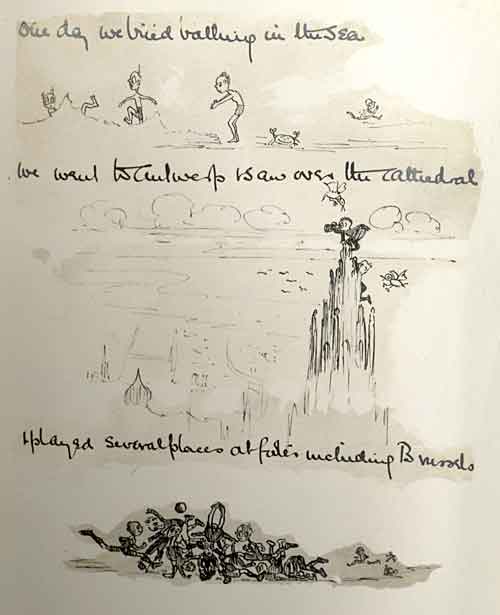 One day we tried bathing in the Sea
we went to Antwerp & saw over the Cathedral
& played several places at fetes including Brussels